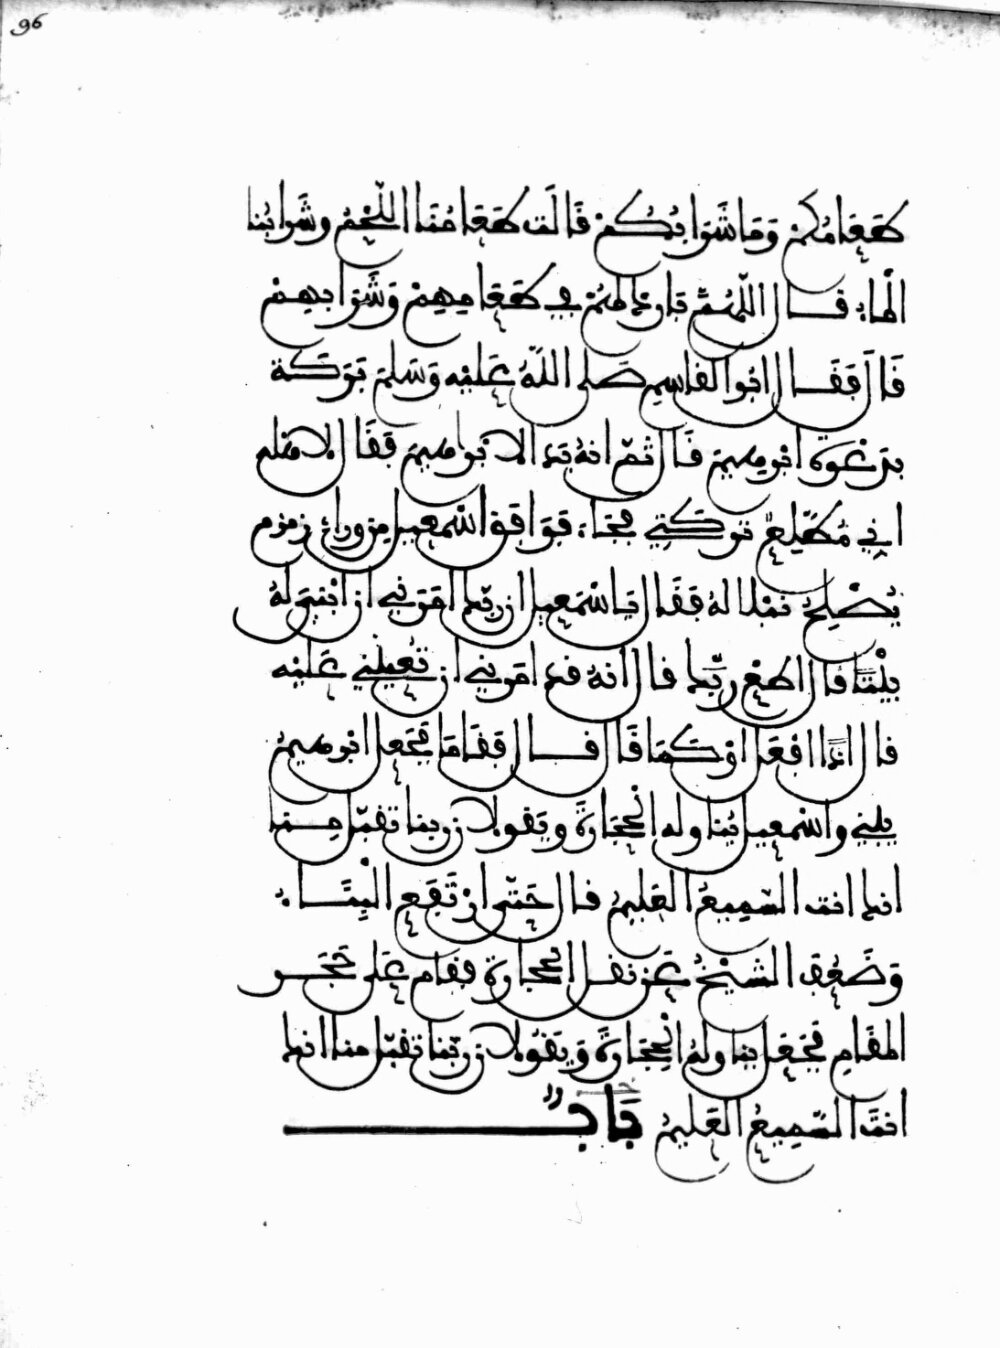 96
طَعَامُكُمْ وَمَا شَرَابُكُمْ قَالَت طَعَامُنَا اللَّحْمُ وشَرَابُنَا
الْماءُ قـال اللّهُمَّ بَارِك لهُمْ فِي طَعَامِهِمْ وَشَرَابِهِمْ
قَالَ فَقَـال ابُوا لقاسِمِ صَلى اللّهُ عَليْه وَسَلمَ بَرَكَة
بِدَعْوَة ابْرهِيمَ قَال ثمّ انهُ بَدا لابْراهِيمَ فقَال لاهْله
اني مُطّلِعٌ تركَتِي فجَاءَ فوَافَقَ اسْمعِيل مِن وراءِ زمزم
يُصْلِحُ نَبْلا لهُ فقَال يَا اسْمَعِيل ان ربّك امَرَنِي ان ابْنِيَ لهُ
بيْتًا قال اطِعْ ربّك قال انهُ قد امَرنِي ان تُعِينني عَليْه
قال اذًا افعَل اوْ كَمَا قَال قـال فقامَا فجَعل ابْرهيمُ
يبْنِي واسْمعِيل يُنَاوله الْحِجَارَةَ ويَقولان ربنا تقبّل مِـنا
انك انت السّمِيعُ العَلِيمُ قال حَتّى ارْتَفَعَ الْبِنَـاءُ
وَضَعُفَ الشيْخُ عَن نقل الحجارة فقامَ عَلى حَجَـر
المقَامِ فَجَعَل يناولهُ الْحِجَارَةَ وَيَقُولان ربّنَا تقبّل منا انك
انتَ السّمِيعُ العَليمُ بَابٌ